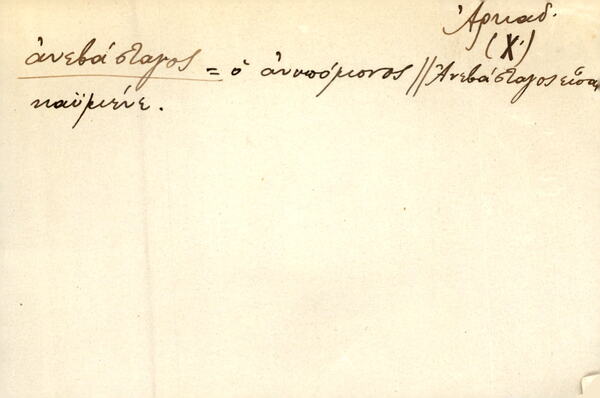 Ἀρκαδ.
(Χ.)
ἀνεβάσταγος = ὁ ἀνυπόμονος // Ἀνεβάσταγος εἶσαι
καϋμένε.